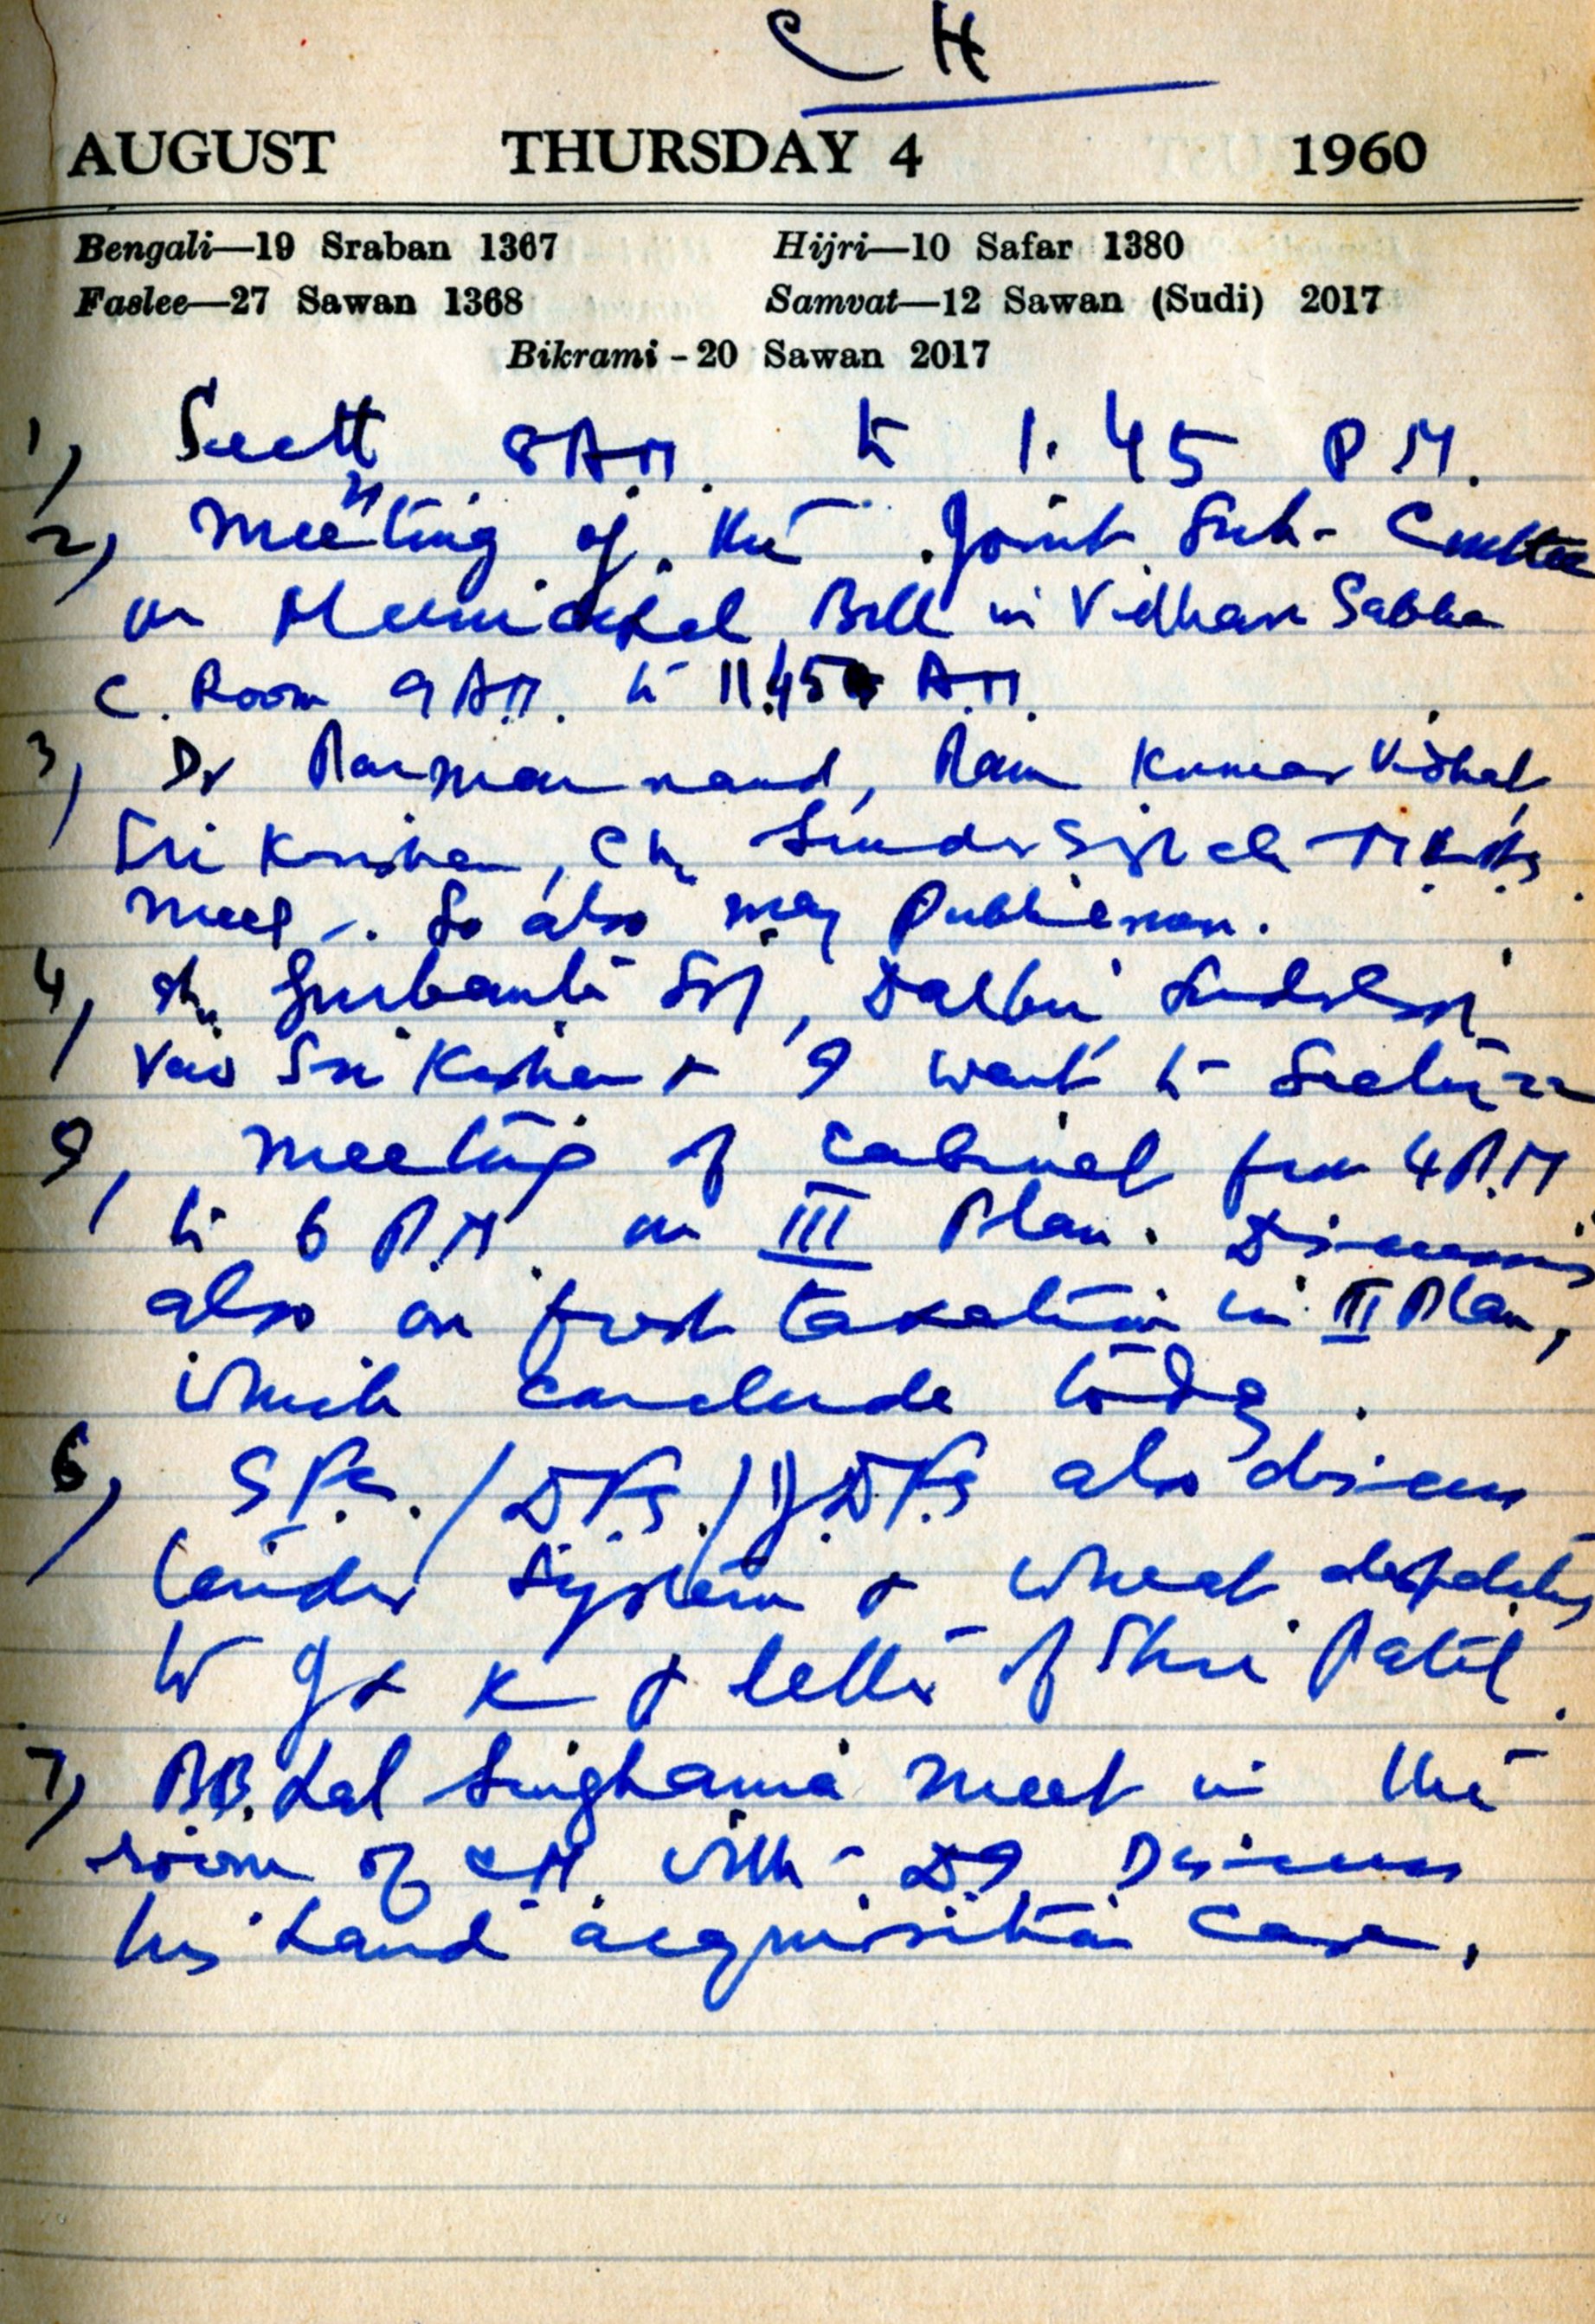 CH
AUGUST THURSDAY 4 1960
Bengali—19 Sraban 1367 Hijri—10 Safar 1380
Faslee—27 Sawan 1368 Samvat—12 Sawan (Sudi) 2017
Bikrami - 20 Sawan 2017
1) Sectt 8 A.M. to 1.45 P.M.
2) Meeting of the Joint Sub-
on Municipal Bill in Vidhan Sabha
C. Room 9 A.M. to 11.45 A.M.
3) Dr Parmanand, Ram Kumar
Sri Krishan, Ch Sunder
meet. So also many Publicmen.
4) Sh. Gurbanta
Sri Kishan & I went to
5, Meeting of Cabinet from 4 P.M
to 6 P.M. on III Plan.
also on fresh taxation in III Plan,
which conclude today.
6) / also discuss
tender system & wheat
& K & letter of Shri Patil.
7) Lal Singhania meet in the
room of C.M. with D.I.
his land acquisition case.